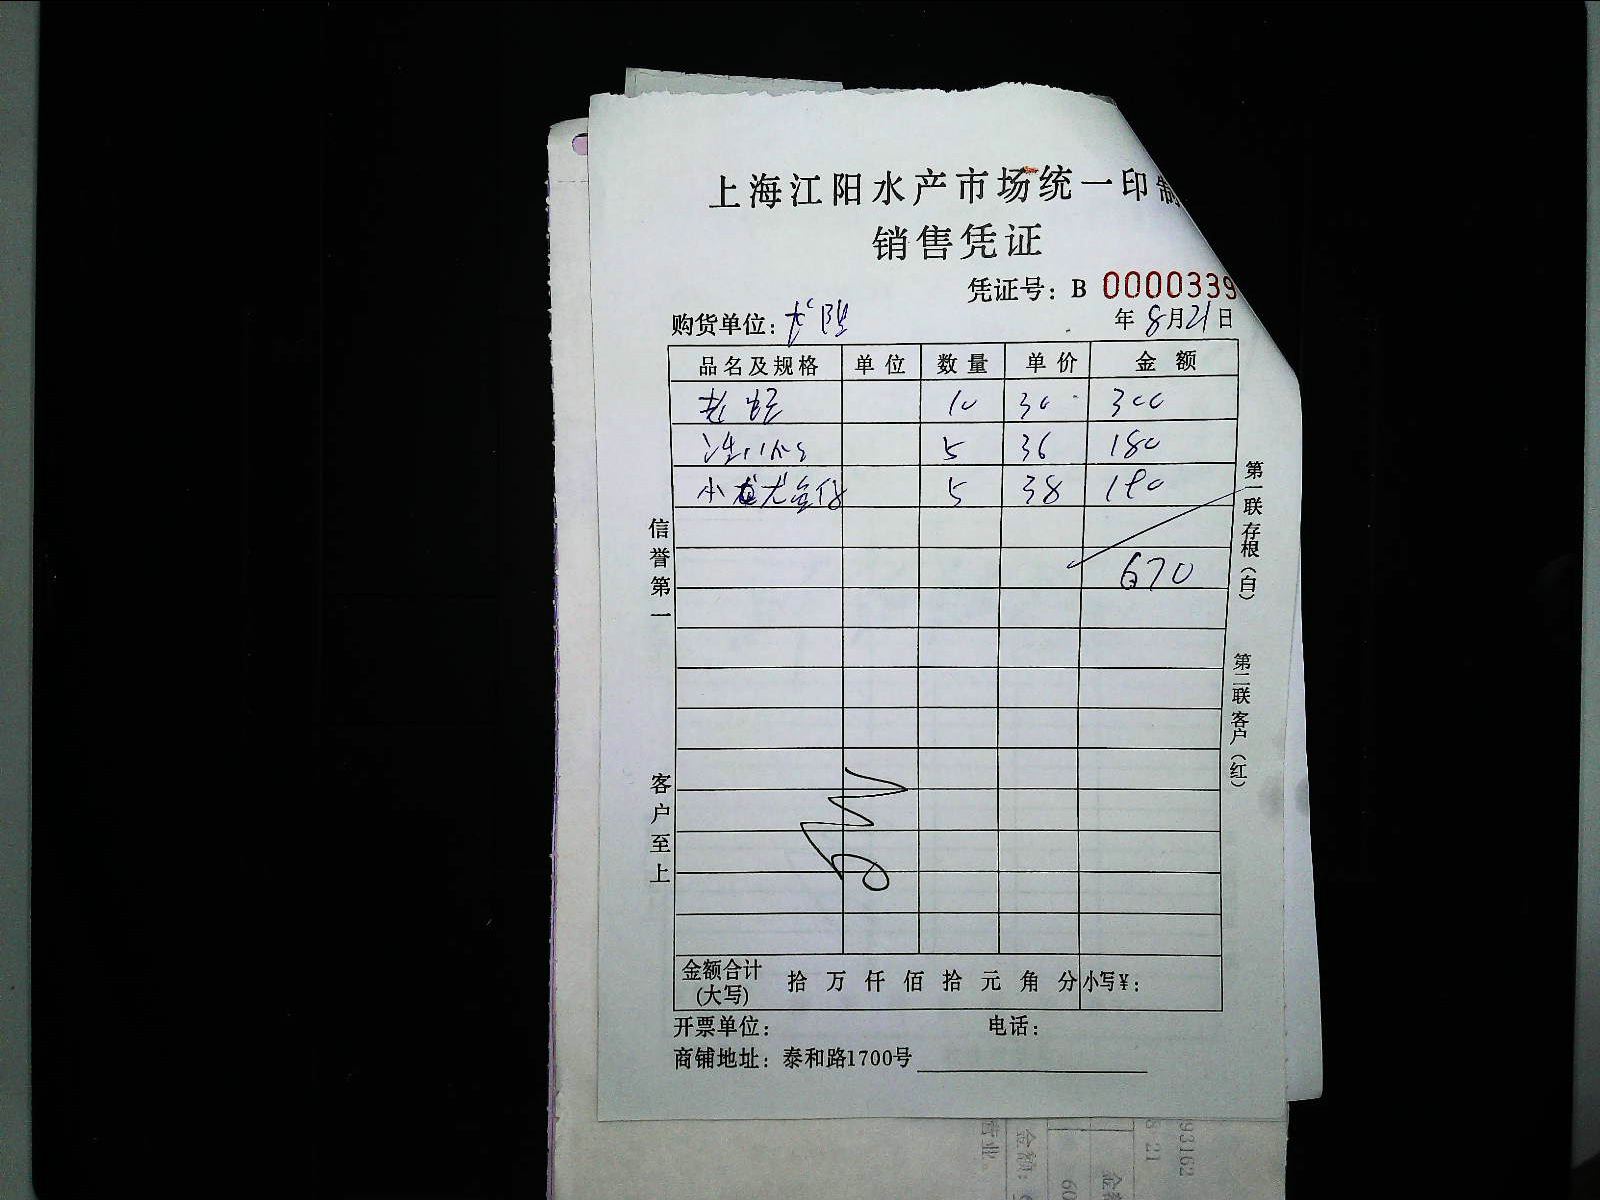 上海江阳水产市场统一印制
销售凭证
凭证号：B 0000339
购货单位：
年 8月21日
品名及规格 单位 数量 单价 金额
10 30 300
5 36 180
小龙 5 38 190
670
信誉第一
客户至上
第一联存根（白）
第二联客户（红）
金额合计(大写) 拾 万 仟 佰 拾 元 角 分 小写¥：
开票单位： 电话：
商铺地址：泰和路1700号
93162
8 21
金额：
营业
60